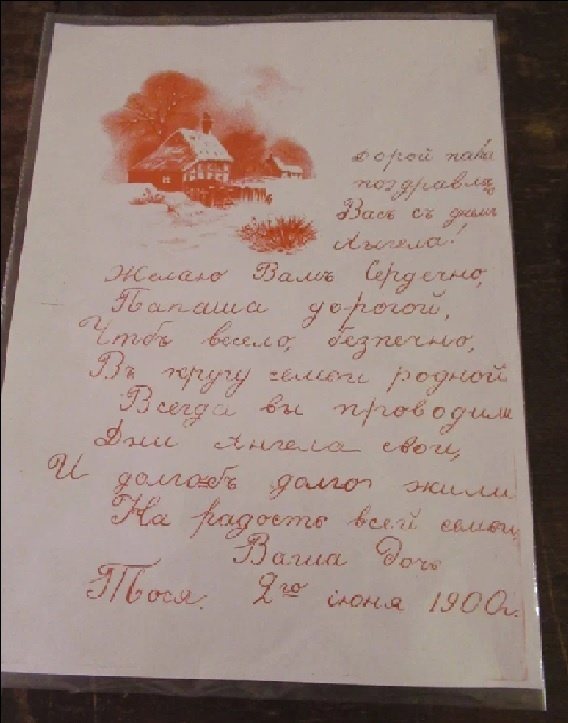 Дорой папа!
поздравляю
Васъ съ днемъ
Ангела!
Желаю Вамъ Сердечно,
Папаша дорогой,
Чтбъ весело, безпечно,
Въ кругу семьи родной
Всегда вы проводили
Дни Ангела свои,
И долго-бъ долго жили
На радость всей семьи
Ваша Дочь
Тося. 2го іюня 1900г.